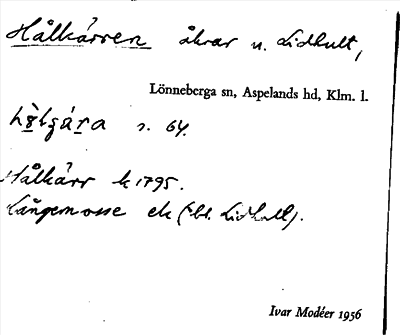 Hålkärren åkrar u. Lidhult,
Lönneberga sn, Aspelands hd, Klm. l.
s. 64.
Hålkärr k 1795.
Långemosse ek (bl. Lidhult).
Ivar Modéer 1956